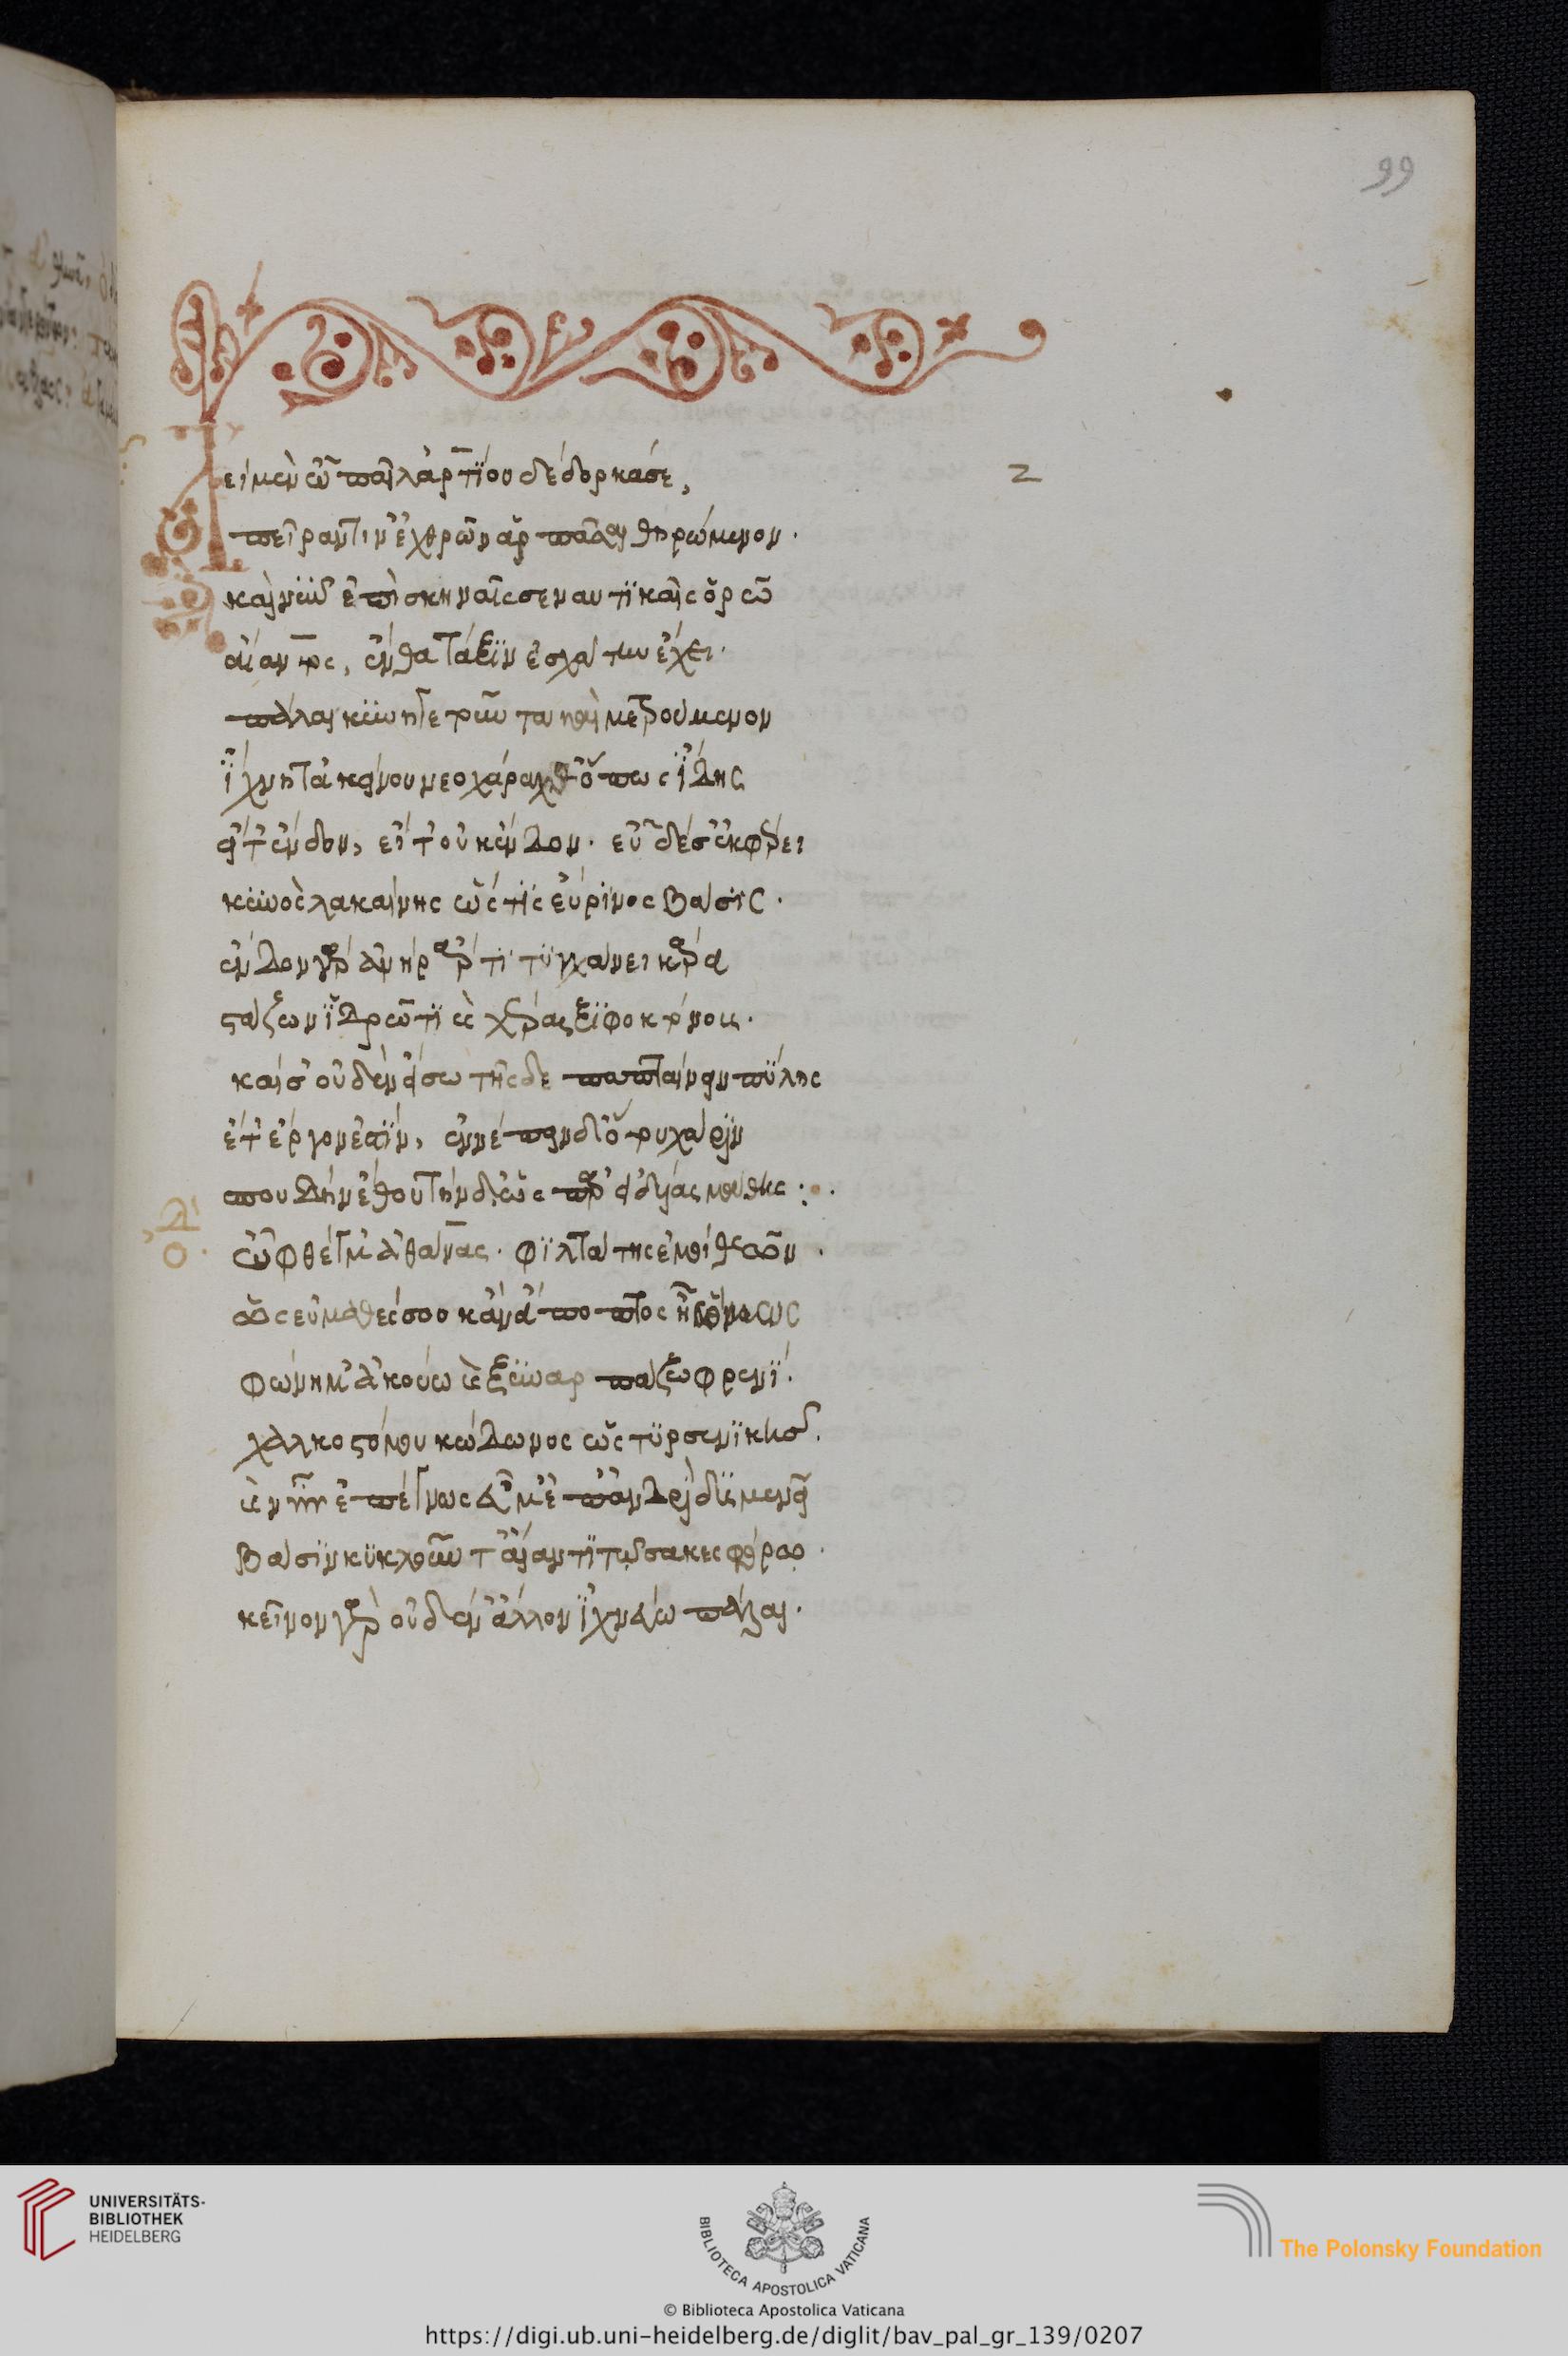 99
Ἀεὶ μὲν ὦ παῖ λαρτίου δέδορκά σε,
2
πεῖράν τιν' ἐχθρῶν ἁρπάσαι θηρώμενον·
καὶ νῦν ἐπὶ σκηναῖς σε ναυτικαῖς ὁρῶ
αἴαντος, ἔνθα τάξιν ἐσχάτην ἔχει·
πάλαι κυνηγετοῦντα καὶ μετρούμενον
ἴχνη τὰ κείνου νεοχάραχθ' ὅπως ἴδης
εἴτ' ἔνδον, εἴτ' οὐκ ἔνδον· εὖ δέ σ' ἐκφέρει
κυνὸς λακαίνης ὥς τις εὔρινος βάσις·
ἔνδον γὰρ ἀνὴρ ἄρτι τυγχάνει κάρα
στάζων ἱδρῶτι καὶ χέρας ξιφοκτόνους·
καί σ' οὐδὲν εἴσω τῆςδε παπταίνειν πύλης
ἔτ' ἔργον ἐστὶν, ἐννέπειν δ' ὅτου χάριν
σπουδὴν ἔθου τήνδ' ὡς παρ' εἰδυίας μάθης
ὀδ
ὦ φθέγμ' ἀθάνας· φιλτάτης ἐμοὶ θεῶν·
ὡς εὐμαθές σου κἂν ἄποπτος ἦς ὅμως
φώνημ' ἀκούω καὶ ξυναρπάζω φρενί·
χαλκοστόμου κώδωνος ὡς τυρσηνικῆς·
καὶ νῦν ἐπέγνως εὖ μ' ἐπ' ἀνδρὶ δυσμενεῖ
βάσιν κυκλοῦντ' αἴαντι τῷ σακεσφόρῳ·
κεῖνον γὰρ οὐδέν' ἄλλον ἰχνεύω πάλαι·
UNIVERSITÄTS-
BIBLIOTHEK
HEIDELBERG
BIBLIOTECA APOSTOLICA VATICANA
© Biblioteca Apostolica Vaticana
The Polonsky Foundation
https://digi.ub.uni-heidelberg.de/diglit/bav_pal_gr_139/0207